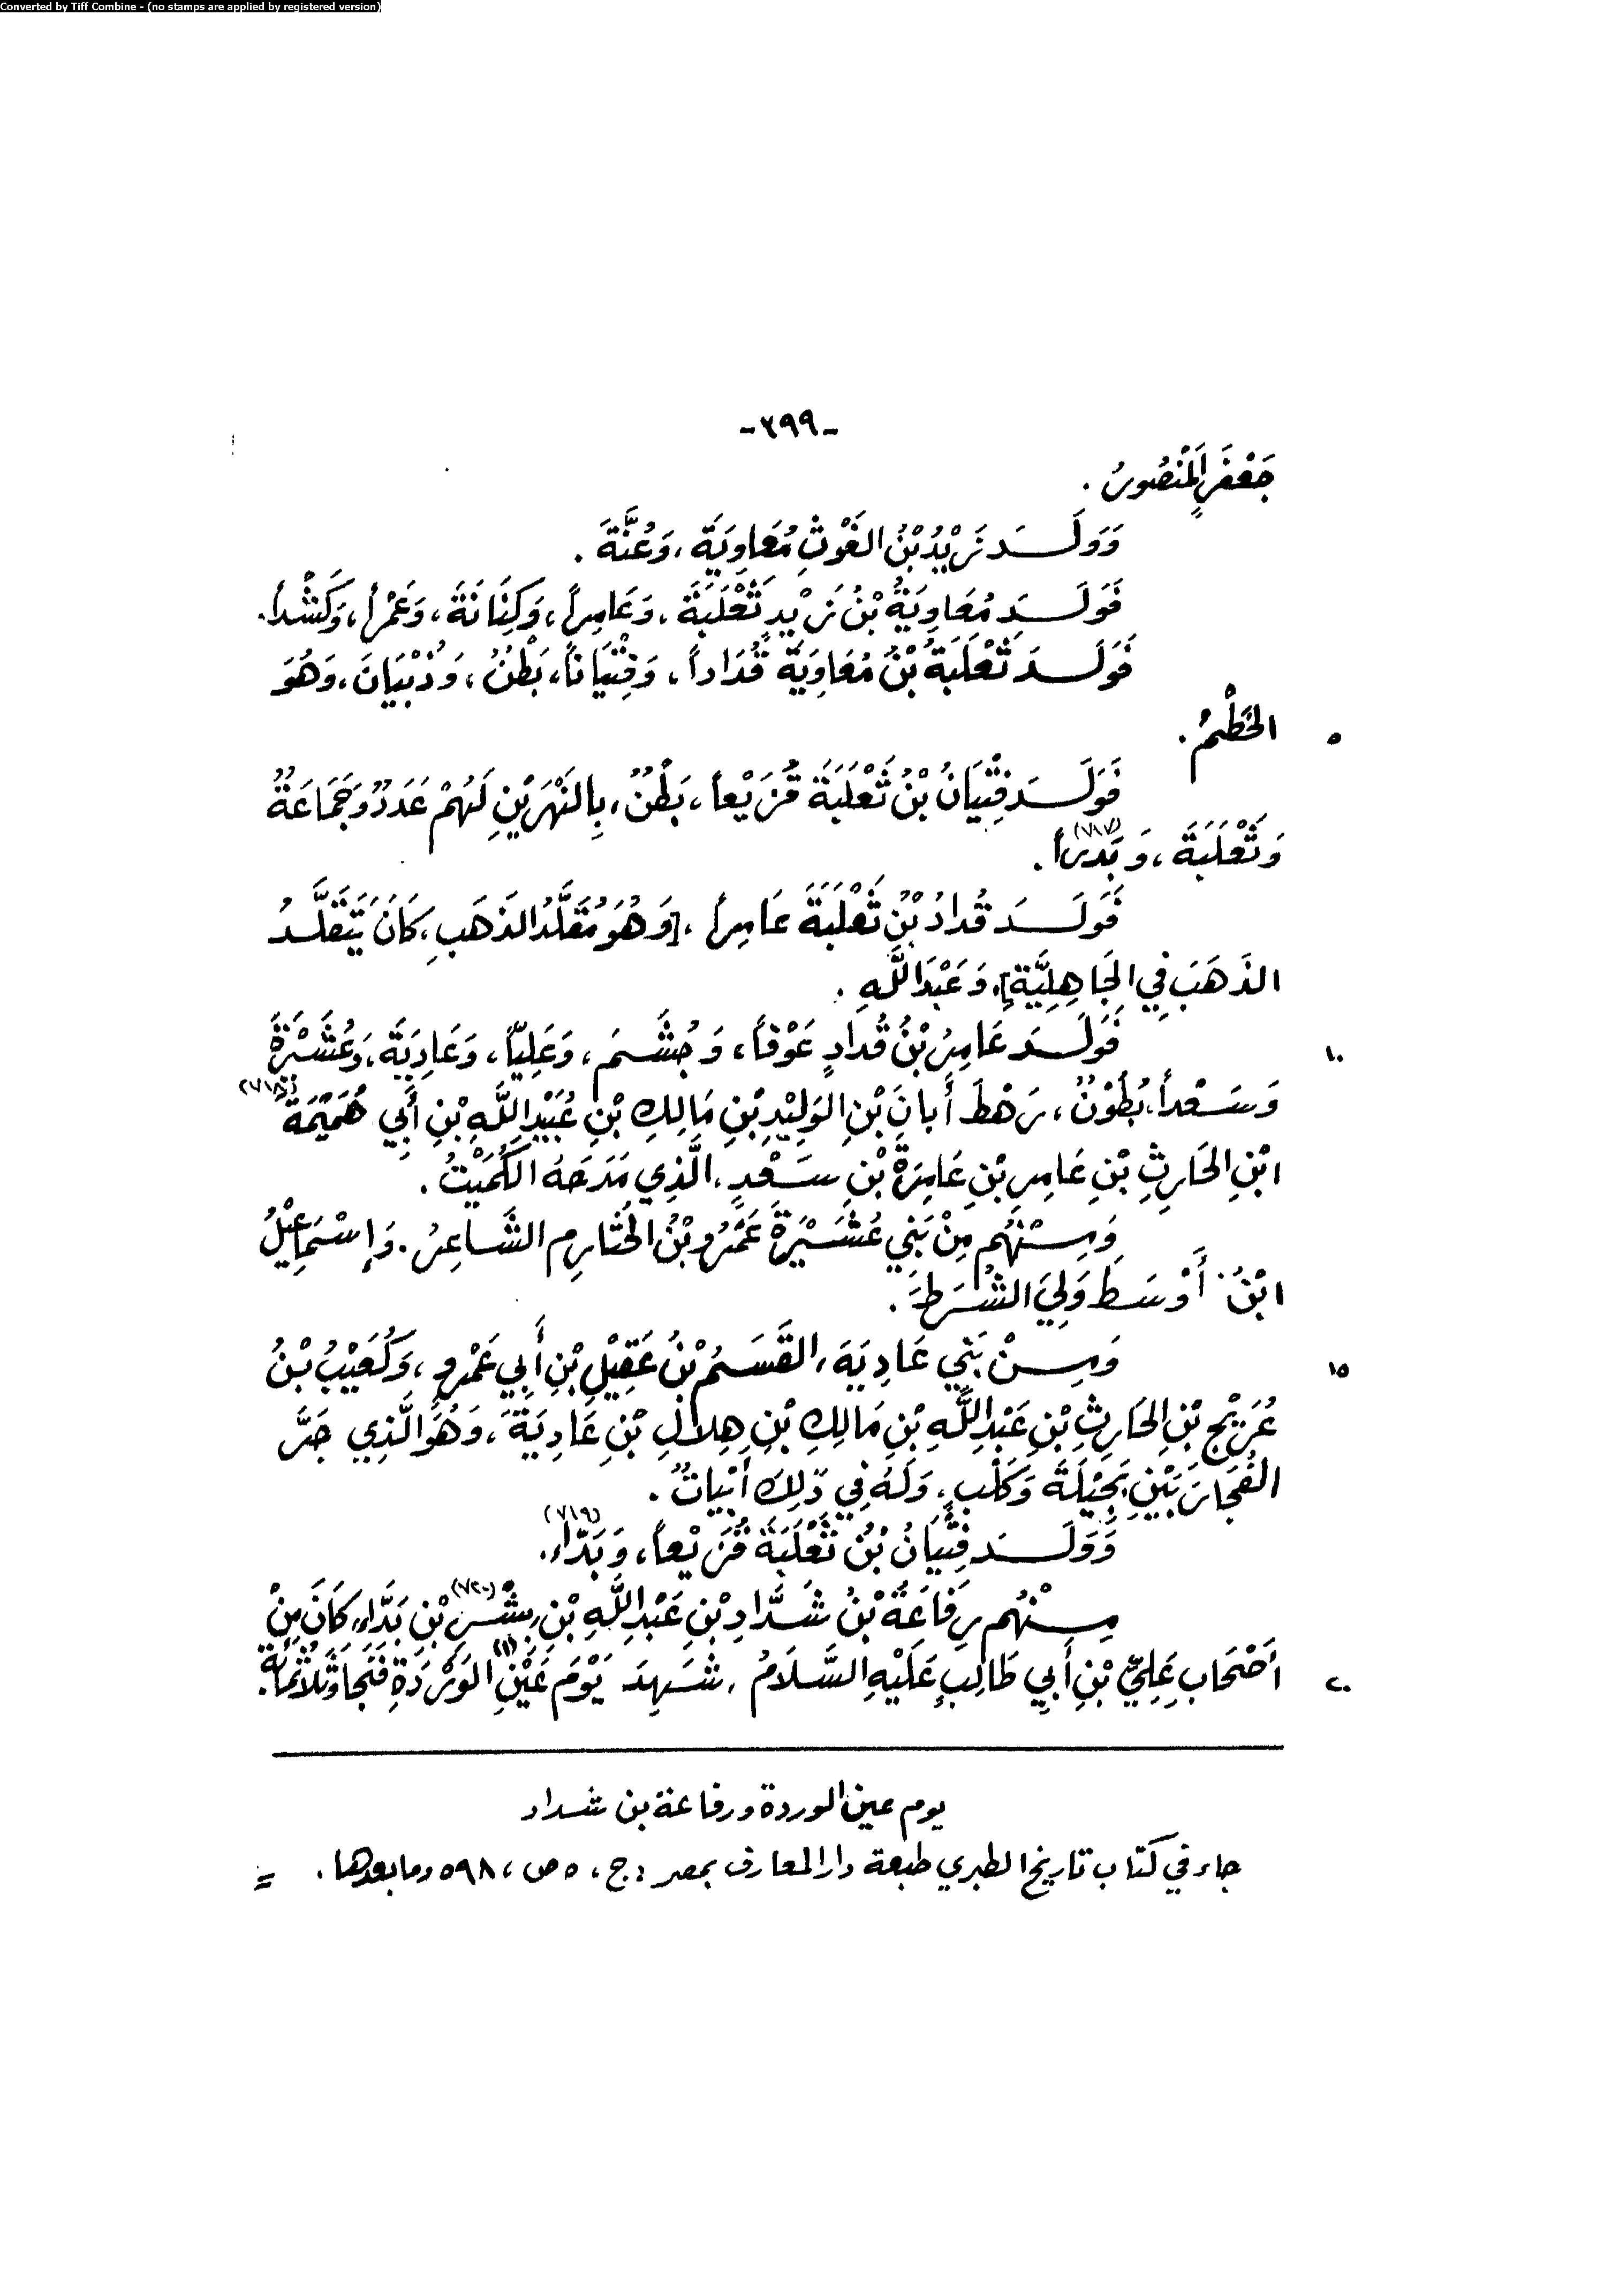 Converted by Tiff Combine - (no stamps are applied by registered version)
-٢٩٩-
جَعْفَرٍ المَنْصُورُ .
وَوَلَـدَ زَيْدُ بْنُ الغَوْثِ مُعَاوِيَةَ ، وَعُنَّةَ .
فَوَلَـدَ مُعَاوِيَةُ بْنُ زَيْدٍ ثَعْلَبَةَ ، وَعَامِراً ، وَكِنَانَةَ ، وَعَمْراً ، وَكَسْداً .
فَوَلَـدَ ثَعْلَبَةُ بْنُ مُعَاوِيَةَ قُدَاداً ، وَفِتْيَاناً ، بَطْنٌ ، وَذُبْيَانَ ، وَهُوَ
٥ الخَطْمُ .
فَوَلَـدَ فِتْيَانُ بْنُ ثَعْلَبَةَ قُرَيْعاً ، بَطْنٌ ، بِالنَهْرَيْنِ لَهُمْ عَدَدٌ وَجَمَاعَةٌ
وَثَعْلَبَةَ ، وَبَدراً (٧١٧) .
فَوَلَـدَ قُدادُ بْنُ ثَعْلَبَةَ عَامِراً ، [وَهُوَ مُقَلَّدُ الذَهَبِ ، كَانَ يَتَقَلَّـدُ
الذَهَبَ فِي الجَاهِلِيَّةِ] ، وَعَبْدَ اللَّهِ .
١٠ فَوَلَـدَ عَامِرُ بْنُ قُدادٍ عَوْفاً ، وَجُشَـمَ ، وَعَلِيّاً ، وَعَادِيَةَ ، وَعُشَـيْرَةَ
وَسَـعْداً ، بُطُوْنٌ ، رَهْطَ أَبانَ بْنِ الوَلِيْدِ بْنِ مَالِكِ بْنِ عُبَيْدِ اللَّهِ بْنِ أَبِي هُمَيْمَةَ (٧١٨)
ابْنِ الحَارِثِ بْنِ عَامِرِ بْنِ عَامِرَةَ بْنِ سَـعْدٍ ، الَّذِي مَدَحَهُ الكُمَيْتُ .
وَمِـنْهُم مِنْ بَنِي عُشَـيْرَةَ عَمْرُو بْنُ الخُثَارِمِ الشَّـاعِرُ . وَإِسْمَاعِيْلُ
ابْنُ أَوْسَـطَ وَلِيَ الشُـرَطَةَ .
١٥ وَمِـنْ بَنِي عَادِيَةَ ، القَسَـمُ بْنُ عَقِيْلِ بْنِ أَبِي عَمْرٍو ، وَكُعَيْبُ بْنُ
عُرَيْجِ بْنِ الحَارِثِ بْنِ عَبْدِ اللَّهِ بْنِ مَالِكِ بْنِ هِلالِ بْنِ عَادِيَةَ ، وَهُوَ الَّذِي جَرَّ
الفُجَارَ بَيْنَ بَجِيْلَةَ وَكَلْبٍ ، وَلَهُ فِي ذَلِكَ أَبْيَاتٌ .
وَوَلَـدَ فِتْيَانُ بْنُ ثَعْلَبَةَ قُرَيْعاً ، وَبَدَّاءَ (٧١٩) .
مِـنْهُم رِفَاعَةُ بْنُ شَـدَّادِ بْنِ عَبْدِ اللَّهِ بْنِ بِشْـرِ (٧٢٠) بْنِ بَدَّاءَ ، كَانَ مِنْ
٢٠ أَصْحَابِ عَلِيِّ بْنِ أَبِي طَالِبٍ عَلَيْهِ السَّـلَامُ ، شَـهِدَ يَوْمَ عَيْنِ (١) الوَرْدَةِ فَنَجَا وَثَلَاثُمائَة .
يوم عين الوردة ورفاعة بن شداد
جاء في كتاب تاريخ الطبري طبعة دار المعارف بمصر : ج ، ٥ ص ، ٥٩٨ وما بعدها . =